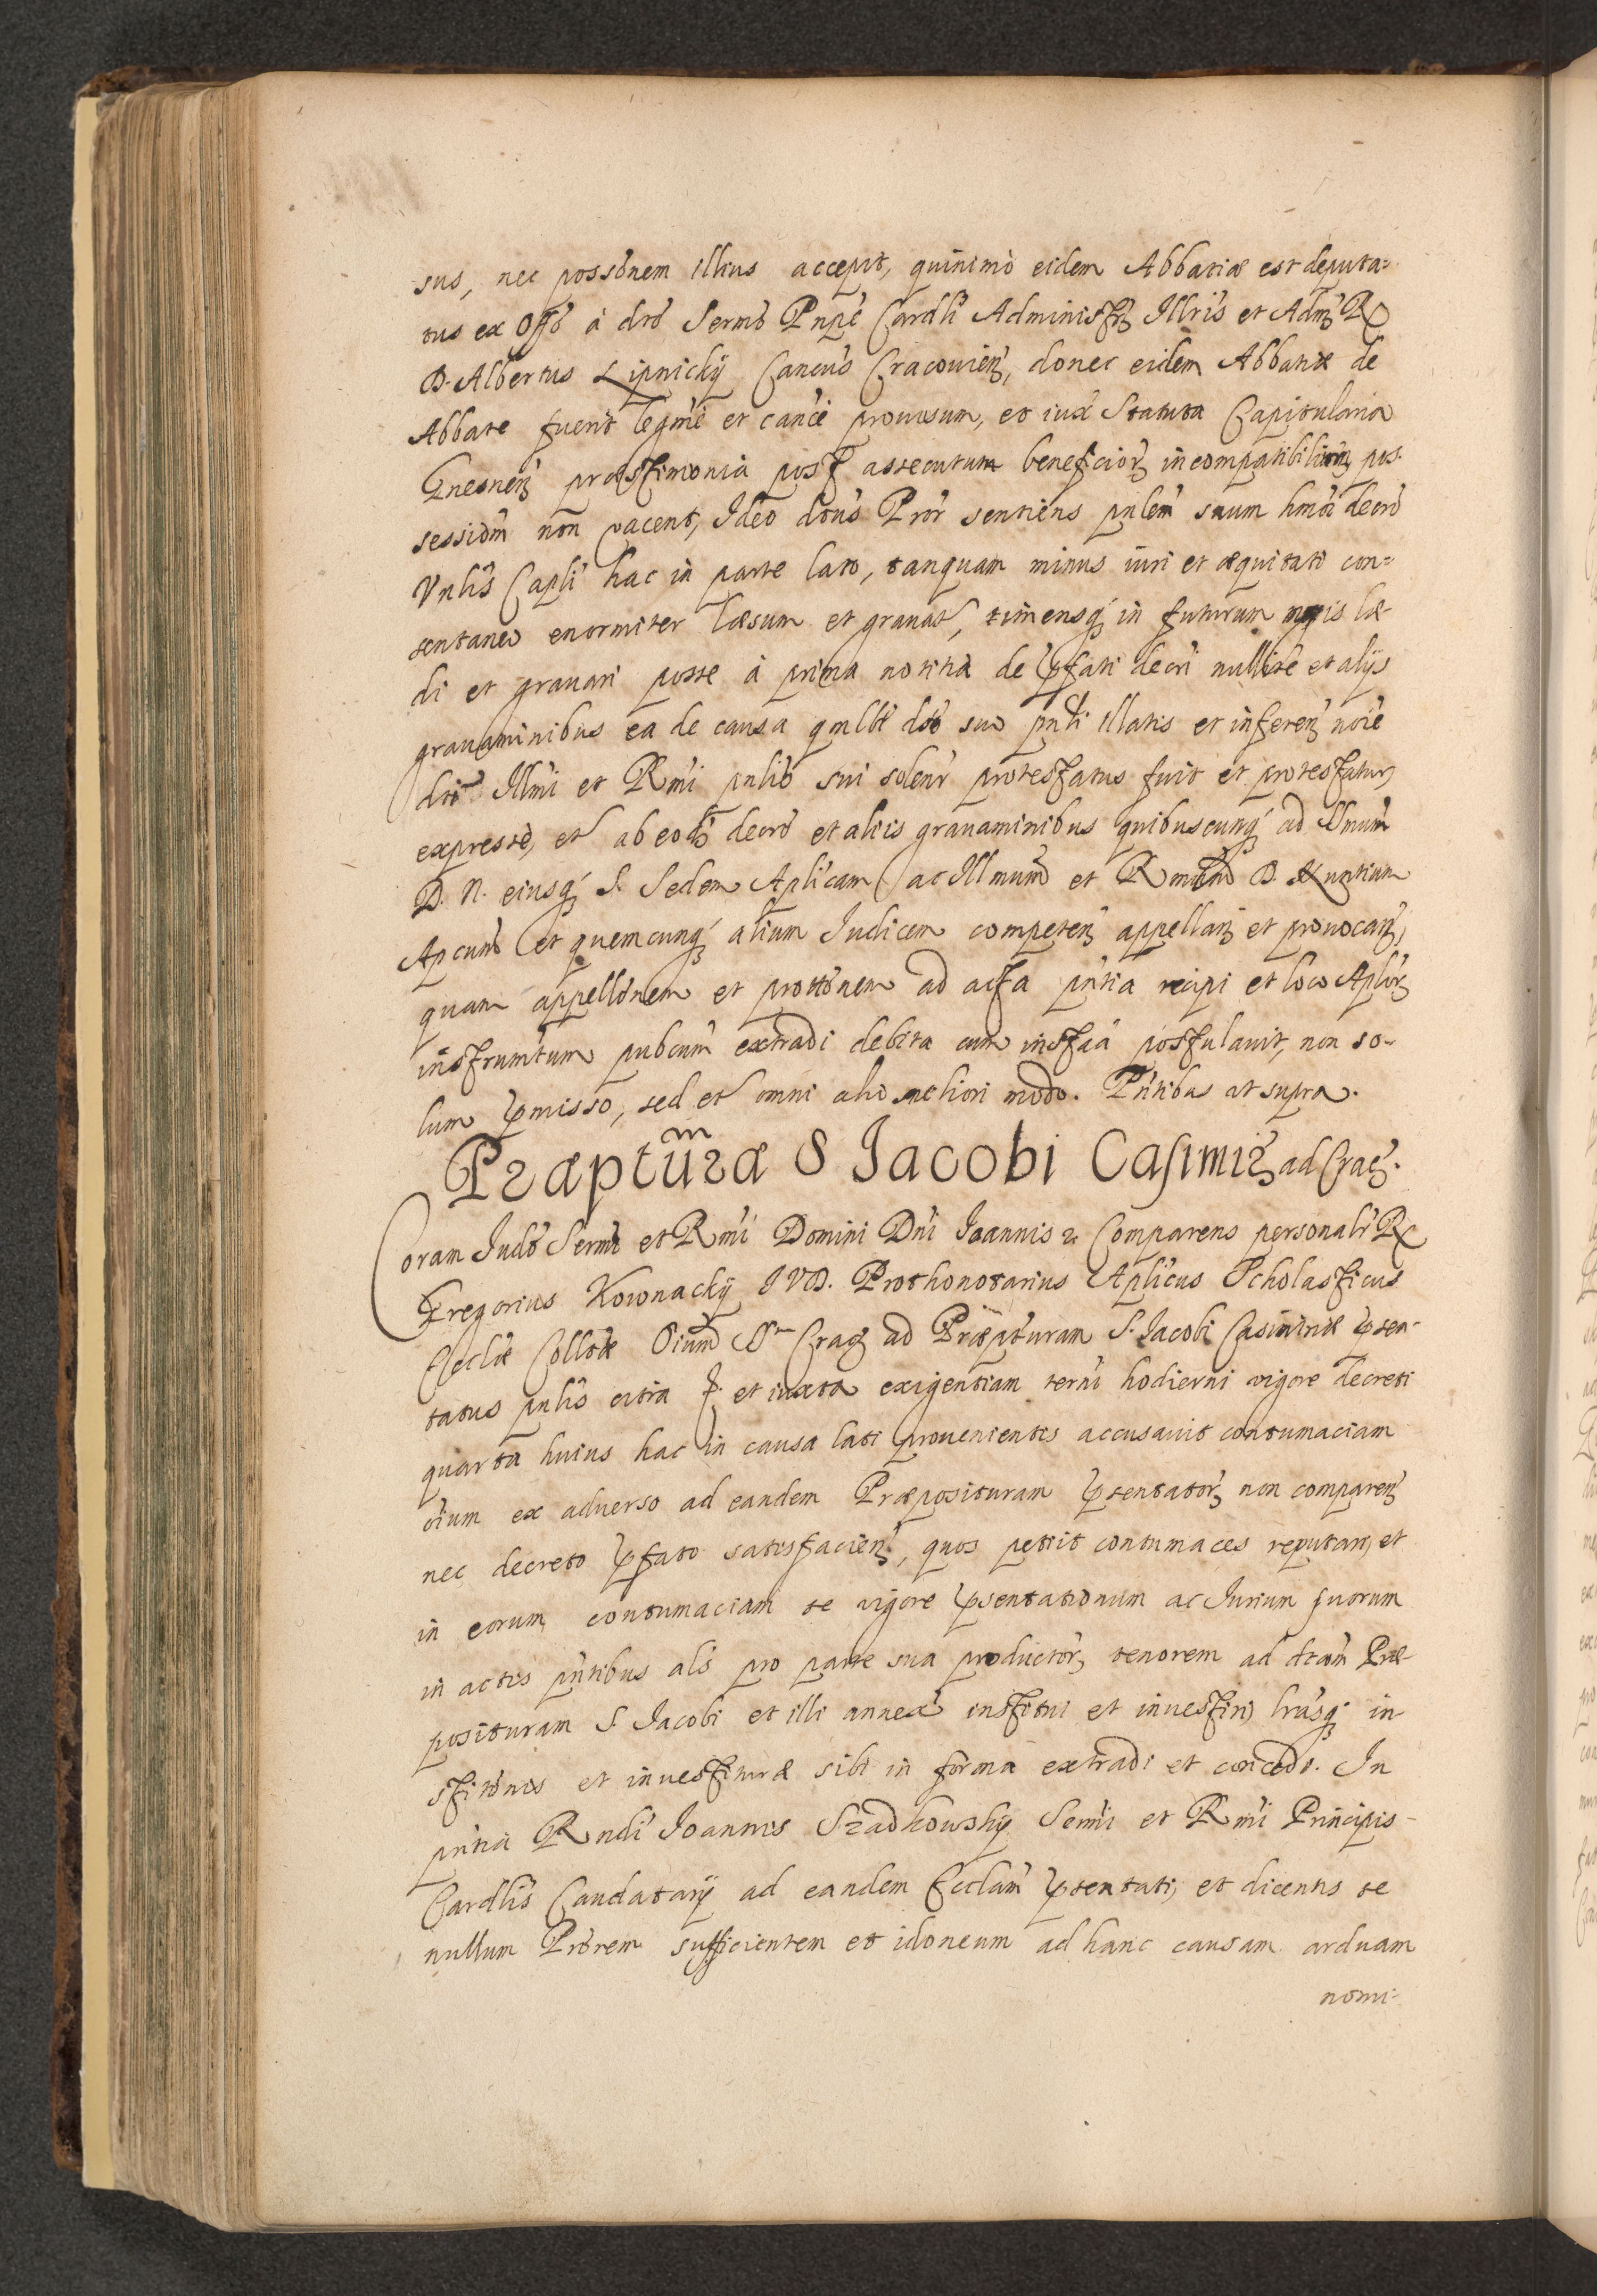 sus, nec possõnem illius accepit, quinimò eidem Abbatiæ est deputa=
tus ex Offõ à dtõ Sermõ Pnpẽ Cardli Administrẽ Illris et Admẽ R
D. Albertus Lipnickÿ Cancũs Cracouieñ, donec eidem Abbatiæ de
Abbate fuerit legmẽ et cancẽ prouisum, et iuxã Statuta Capitularia
Gnesneñ præstimonia post assecutum beneficiorʒ incompatibilium pos-
sessiõm non vacent, Ideo dtus Pror sentiens pnlem suum hmõi decrõ
Vnlis Capli hac in parte lato, tanquam minus iuri et æquitati con=
sentaneo enormiter læsum et grauat, timensqʒ in futurum magis læ-
di et grauari posse à prima notitia de ꝓfati decri nullitẽ et alijs
grauaminibus ea de causa qmlbt dtõ suo pnli illatis et infereñ noiẽ
dti Illmi et Rmi pnlis sui solenr protestatus fuit et protestatur,
expressè, et ab eodẽ decrõ et aliis grauaminibus quibuscunqʒ ad Smum
D. N. eiusqʒ S. Sedem Aplicam ac Illmum et Rmum D. Nuntium
Apcum et quemcunqʒ alium Iudicem competeñ appellañ et prouocañ,
quam appellõnem et prottõnem ad acta pntia recipi et loco Aplorʒ
instrumtum pubcum extradi debita cum instãa postulauit, non so-
lum ꝓmisso, sed et omni alio meliori modo. Pntibus ut supra.
Præptũram S Jacobi Casimirʒ ad Cracʒ.
Coram Iudõ Sermi et Rmi Domini Dni Ioannis &c Comparens personalr R
Gregorius Kownackÿ IVD. Prothonotarius Aplicus Scholasticus
Eccliæ Collõæ Oium SSrum Cracʒ ad Præpturam S. Iacobi Casimiriæ ꝓsen-
tatus pnlis citra ʒ. et iuxta exigentiam termi hodierni vigore decreti
quarta huius hac in causa lati prouenientis accusauit contumaciam
oium ex aduerso ad eandem Præposituram ꝓsentatorʒ non compareñ
nec decreto ꝓfato satisfacieñ, quos petiit contumaces reputari, et
in eorum contumaciam se vigore ꝓsentationum ac Iurium suorum
in actis pntibus als pro parte sua productorʒ tenorem ad dtam Præ-
posituram S. Iacobi et illi annexa institui et inuestiri, lrasqʒ in-
stitõnis et inuestituræ sibi in forma extradi et concedi. In
pntia Rndi Ioannis Szadkowskÿ Sermi et Rmi Principis
Cardlis Caudatarÿ ad eandem Ecclam ꝓsentati, et dicentis se
nullum Prõrem sufficientem et idoneum ad hanc causam arduam
nomi-